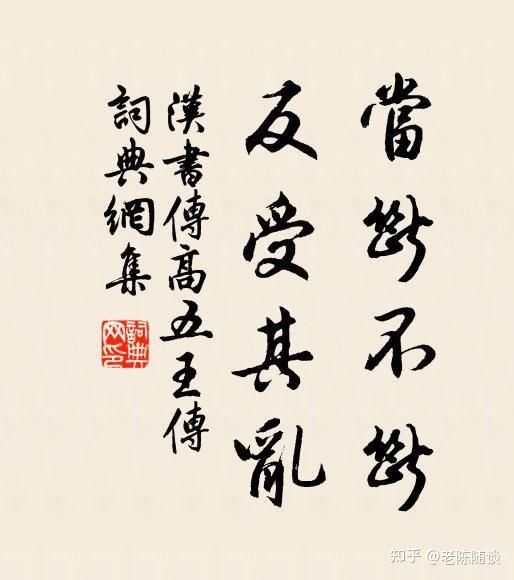 當斷不斷
反受其亂
漢書傳高五王傳
詞典網集
詞典网印
知乎 @老陈随谈